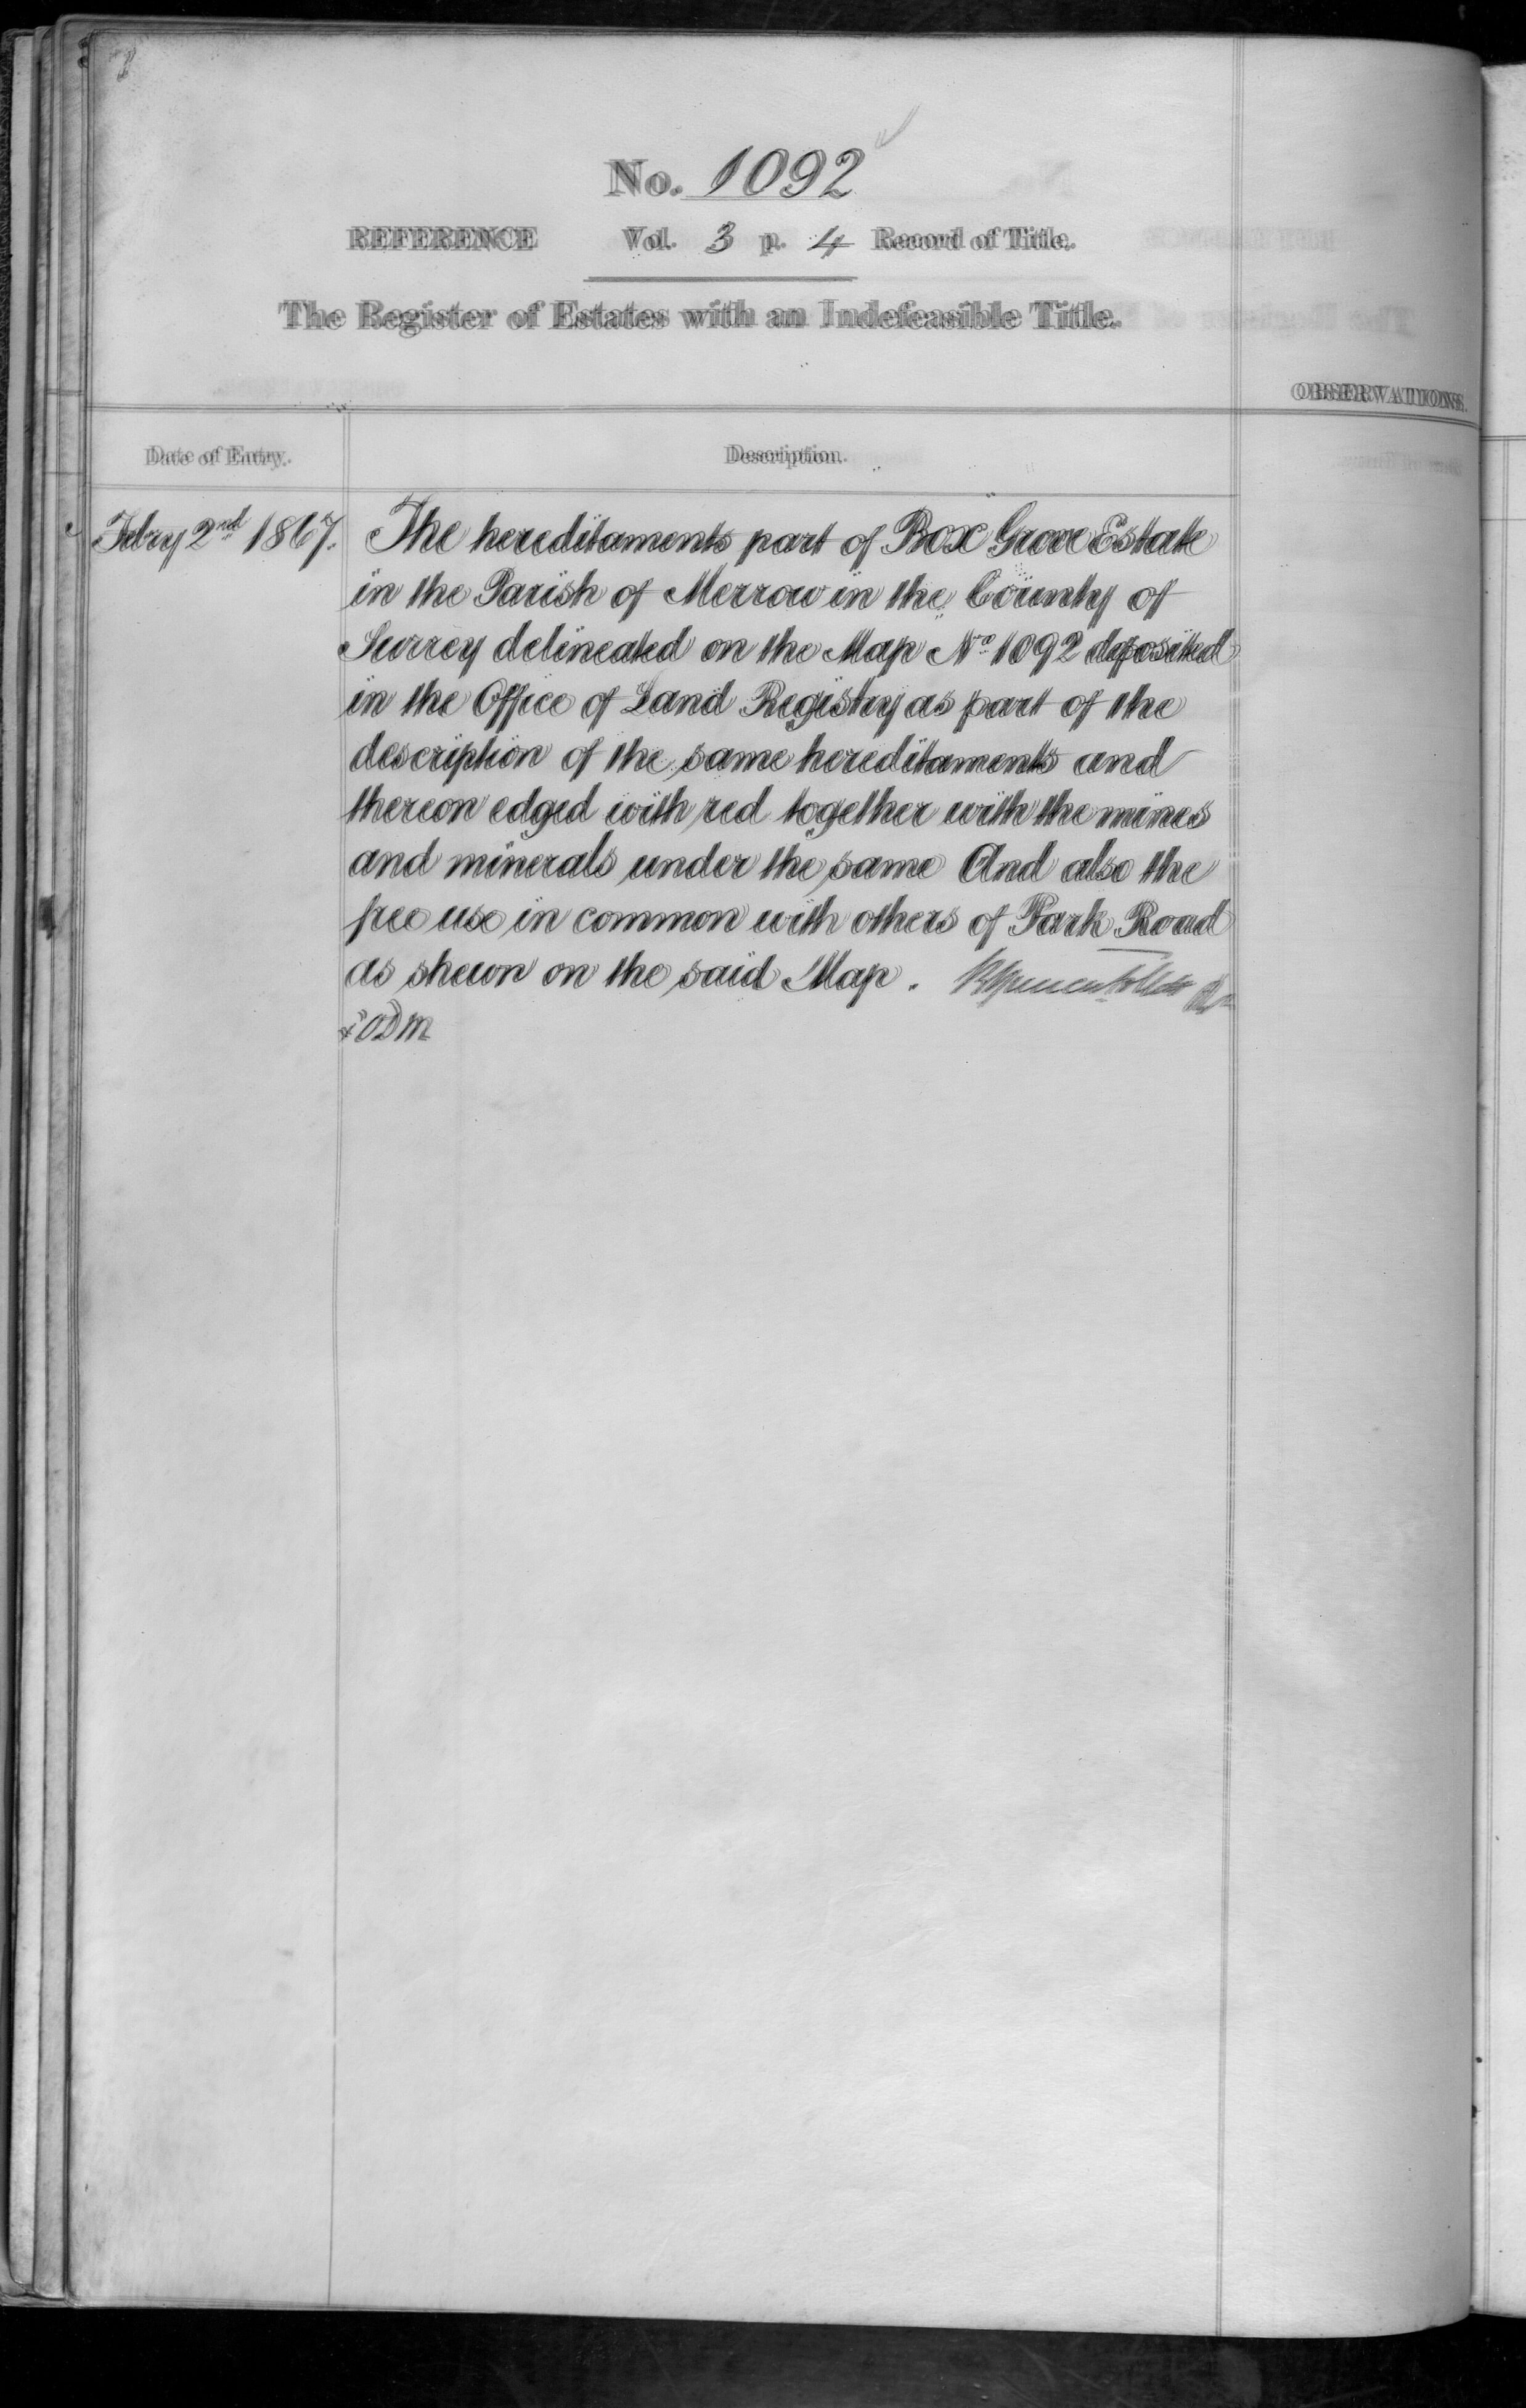 No. 1092
REFERENCE Vol. 3 p. 4 Record of Title.
The Register of Estates with an Indefeasible Title.
OBSERVATIONS.
Date of Entry. Description.
Febry 2nd 1867. The hereditaments part of Box Grove Estate
in the Parish of Merrow in the County of
Surrey delineated on the Map No 1092 deposited
in the Office of Land Registry as part of the
description of the same hereditaments and
thereon edged with red together with the mines
and minerals under the same And also the
free use in common with others of Park Road
as shewn on the said Map.